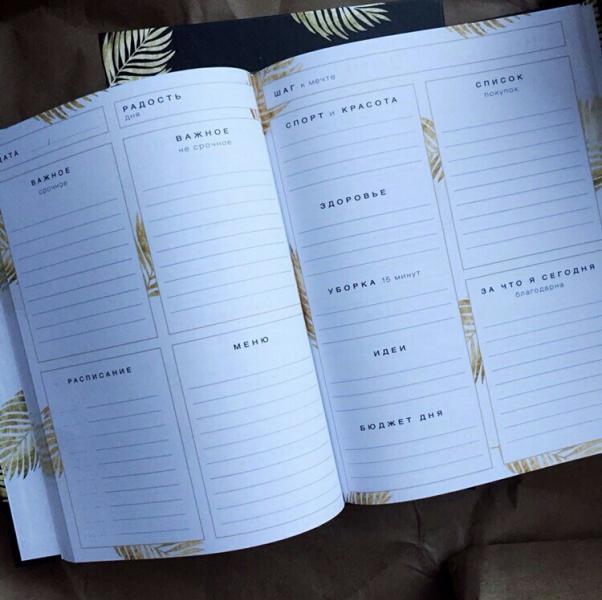 ДАТА
РАДОСТЬ
дня
ВАЖНОЕ
срочное
ВАЖНОЕ
не срочное
РАСПИСАНИЕ
МЕНЮ
ШАГ к мечте
СПОРТ и КРАСОТА
ЗДОРОВЬЕ
УБОРКА 15 минут
ИДЕИ
БЮДЖЕТ ДНЯ
СПИСОК
покупок
ЗА ЧТО Я СЕГОДНЯ
благодарна